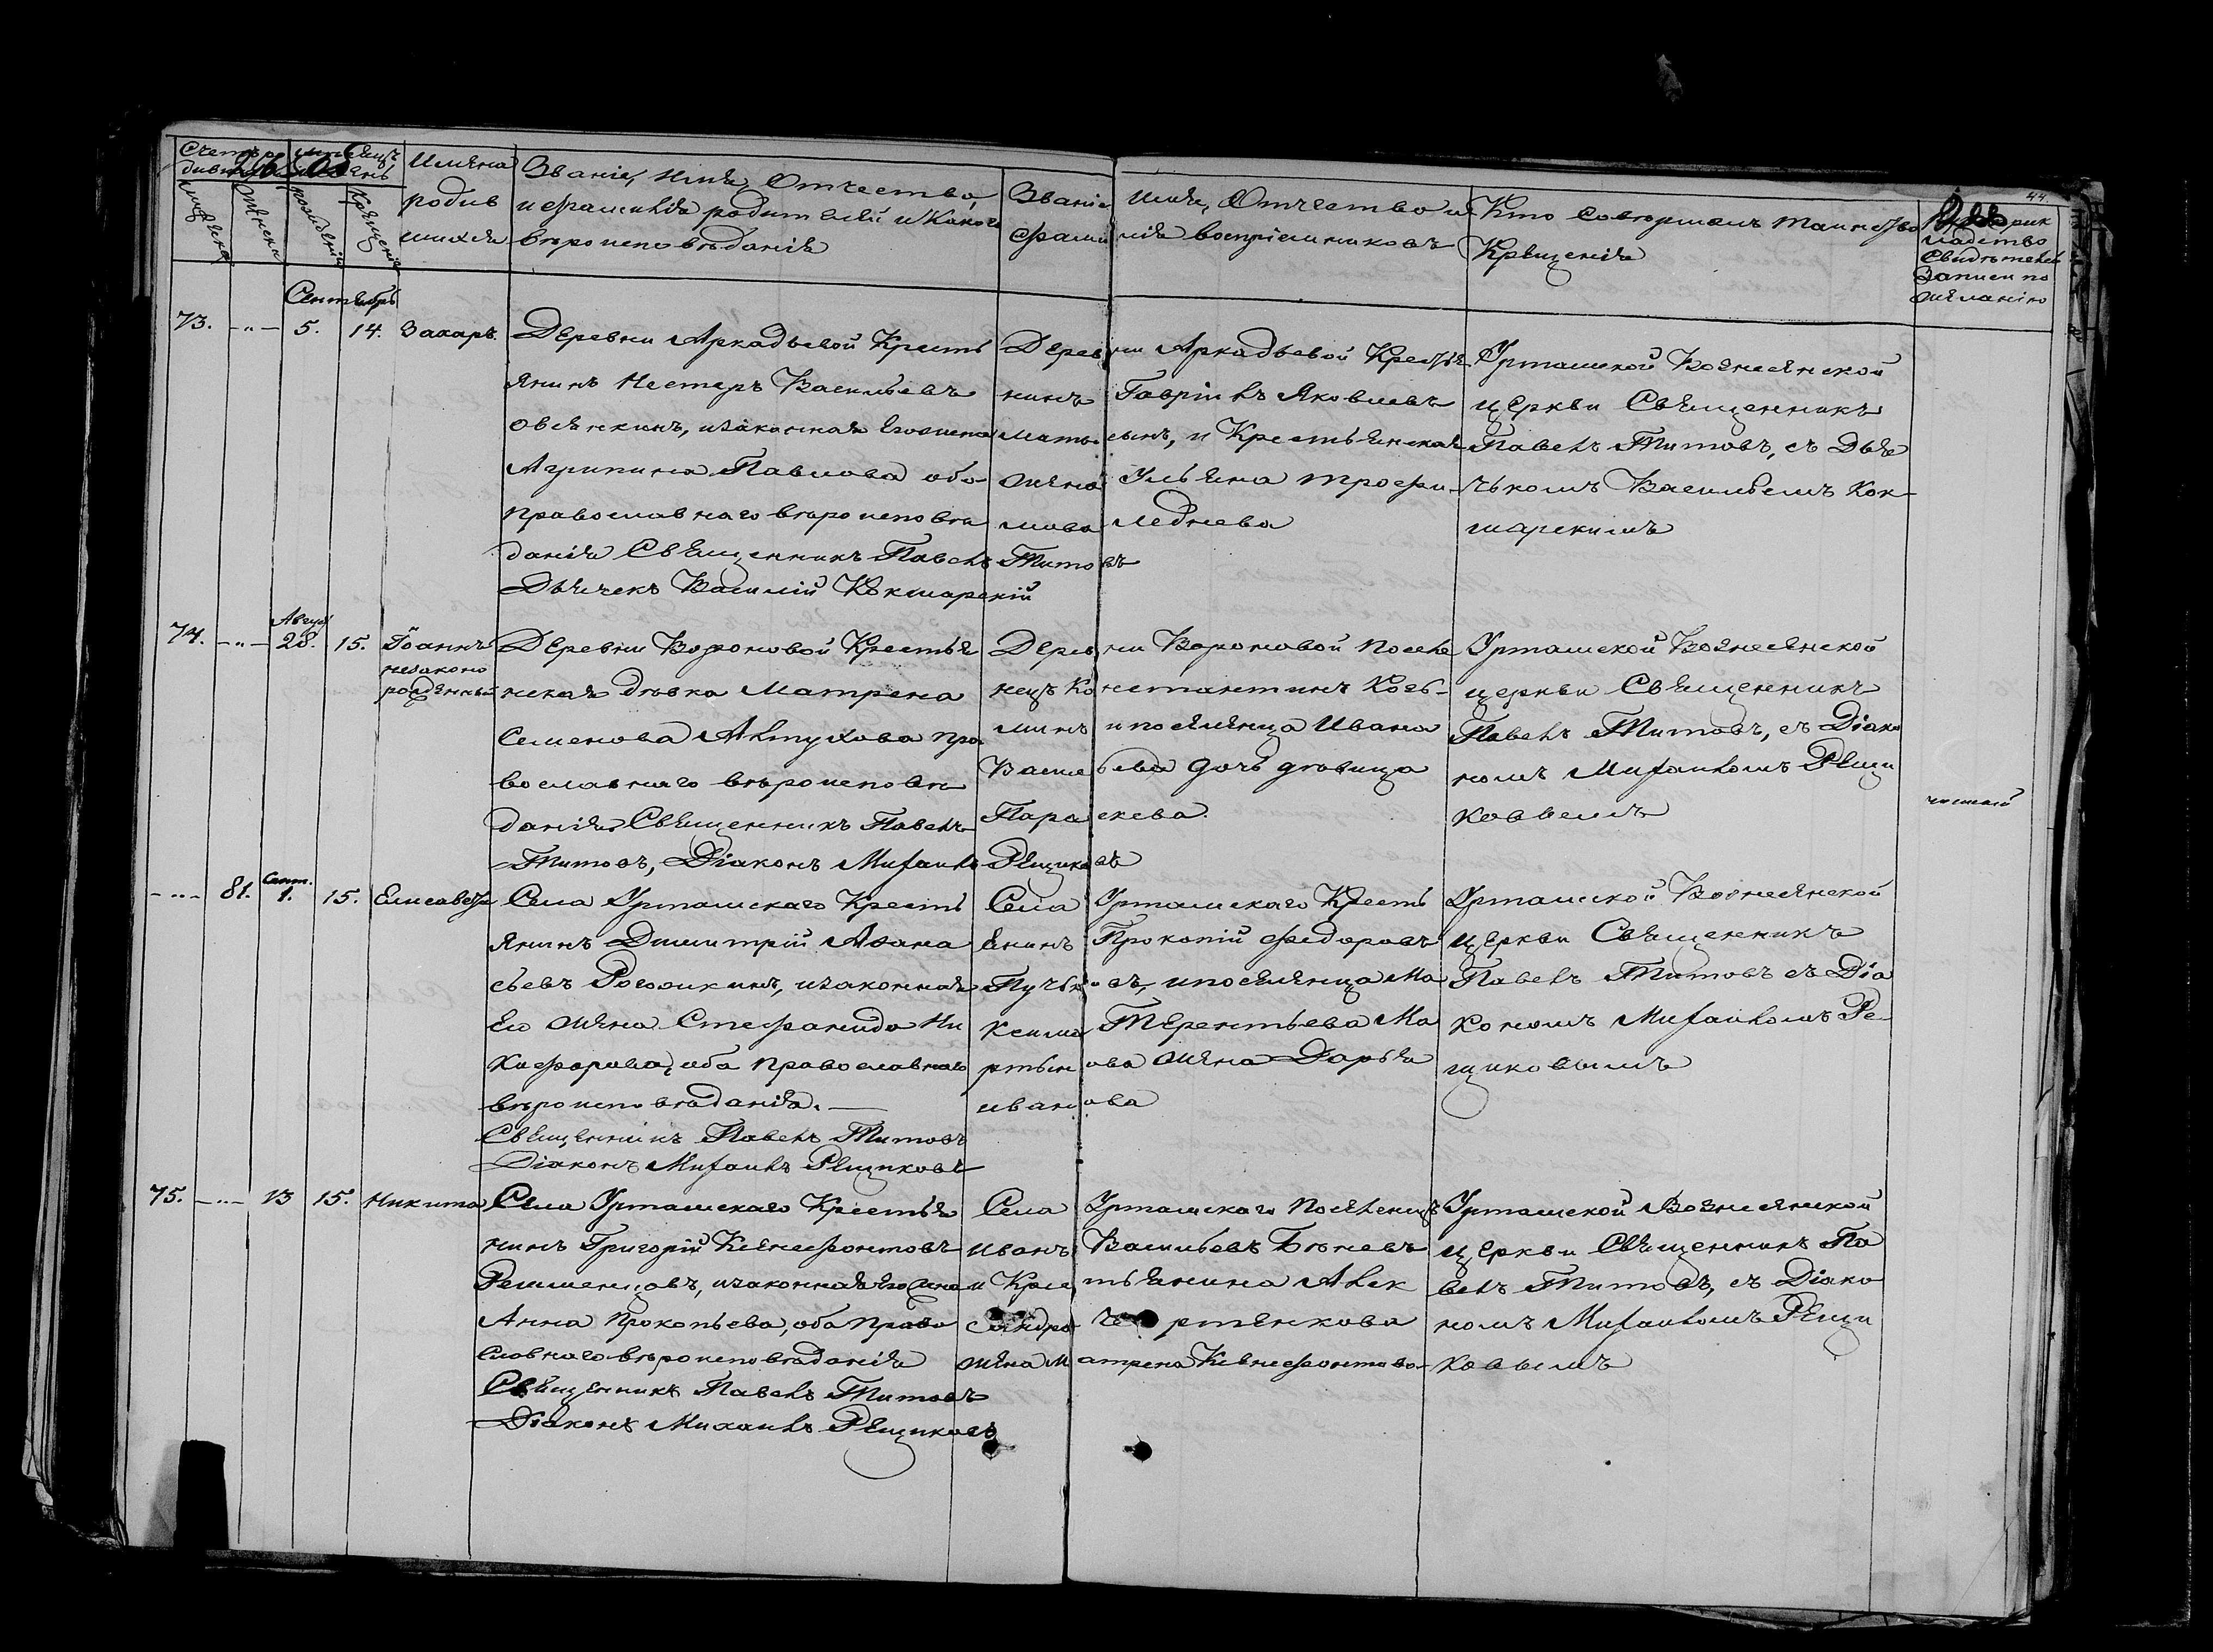 44.
Счетъ ро
дившихся
мѣсяцъ
день
мужеска
женска
рожденія
крещенія
Имена
родив
шихся
Званіе, имя, Отчество,
и фамилія родителей и какого
вѣроисповѣданія
Званіе имя, Отчество и
фамилія воспріемниковъ
Кто Совершалъ таинство
Крещенія
свидѣтелей
записи по
желанію
Сентябрь
73. -"- 5. 14. Захаръ.
Деревни Аркадьевой Кресть
янинъ Нестеръ Васильевъ
Овсянкинъ, изаконная Его жена
Агрипина Павлова оба
православнаго вѣроисповѣ
данія Священникъ Павелъ Титовъ
Дьячекъ Василій Кокшарскій
Деревни Аркадьевой Крестья
нинъ Гавріилъ Яковлевъ
сынъ, и Крестьянская
жена Ульяна трофи
мова Леднева
Урташской Вознесенской
церкви Священникъ
Павелъ Титовъ, съ Дья
чькомъ Васильемъ Кок
шарскимъ
74. -"- Авгус 28. 15. Іоаннъ
незаконо
рожденный
Деревни Вороновой Крестья
нская дѣвка Матрена
Семенова Алтухова пра
вославнаго вѣроисповѣ
данія Священникъ Павелъ
Титовъ, Діаконъ Михаилъ Рещиковъ
Деревни Вороновой Поселе
нецъ Константинъ Козь
минъ и поселенца Ивана
Васильева дочь дѣвица
Параскева.
Урташской Вознесенской
церкви Священникъ
Павелъ Титовъ, съ Діако
номъ Михаиломъ Рещи
ковымъ
-"- 81. Сент. 1. 15. Елисавета
Села Урташскаго Кресть
янинъ Димитрій Афана
сьевъ Рогожкинъ, изаконная
Его жена Стефанида Ни
кифорова, оба православнаго
вѣроисповѣданія.
Священникъ Павелъ Титовъ
Діаконъ Михаилъ Рещиковъ
Села Урташскаго Кресть
янинъ Прокопій Федоровъ
Пучьковъ, и поселенца Ма
ксима Терентьева Ма
ртынова жена Дарья
иванова
Урташской Вознесенской
церкви Священникъ
Павелъ Титовъ съ Діа
кономъ Михаиломъ Ре
щиковымъ
75. -"- 13 15. Никита
Села Урташскаго Крестья
нинъ Григорій Ксенофонтовъ
изаконная его жена
Анна Прокопьева, оба право
славнаго вѣроисповѣданія
Священникъ Павелъ Титовъ
Діаконъ Михаилъ Рещиковъ
Села Урташскаго Поселенецъ
Иванъ Васильевъ Бѣневъ
и Крестьянина Алек
сандра Чертенкова
жена Матрена Ксенофонтова
Урташской Вознесенской
церкви Священникъ Па
велъ Титовъ, съ Діако
номъ Михаиломъ Рещи
ковымъ